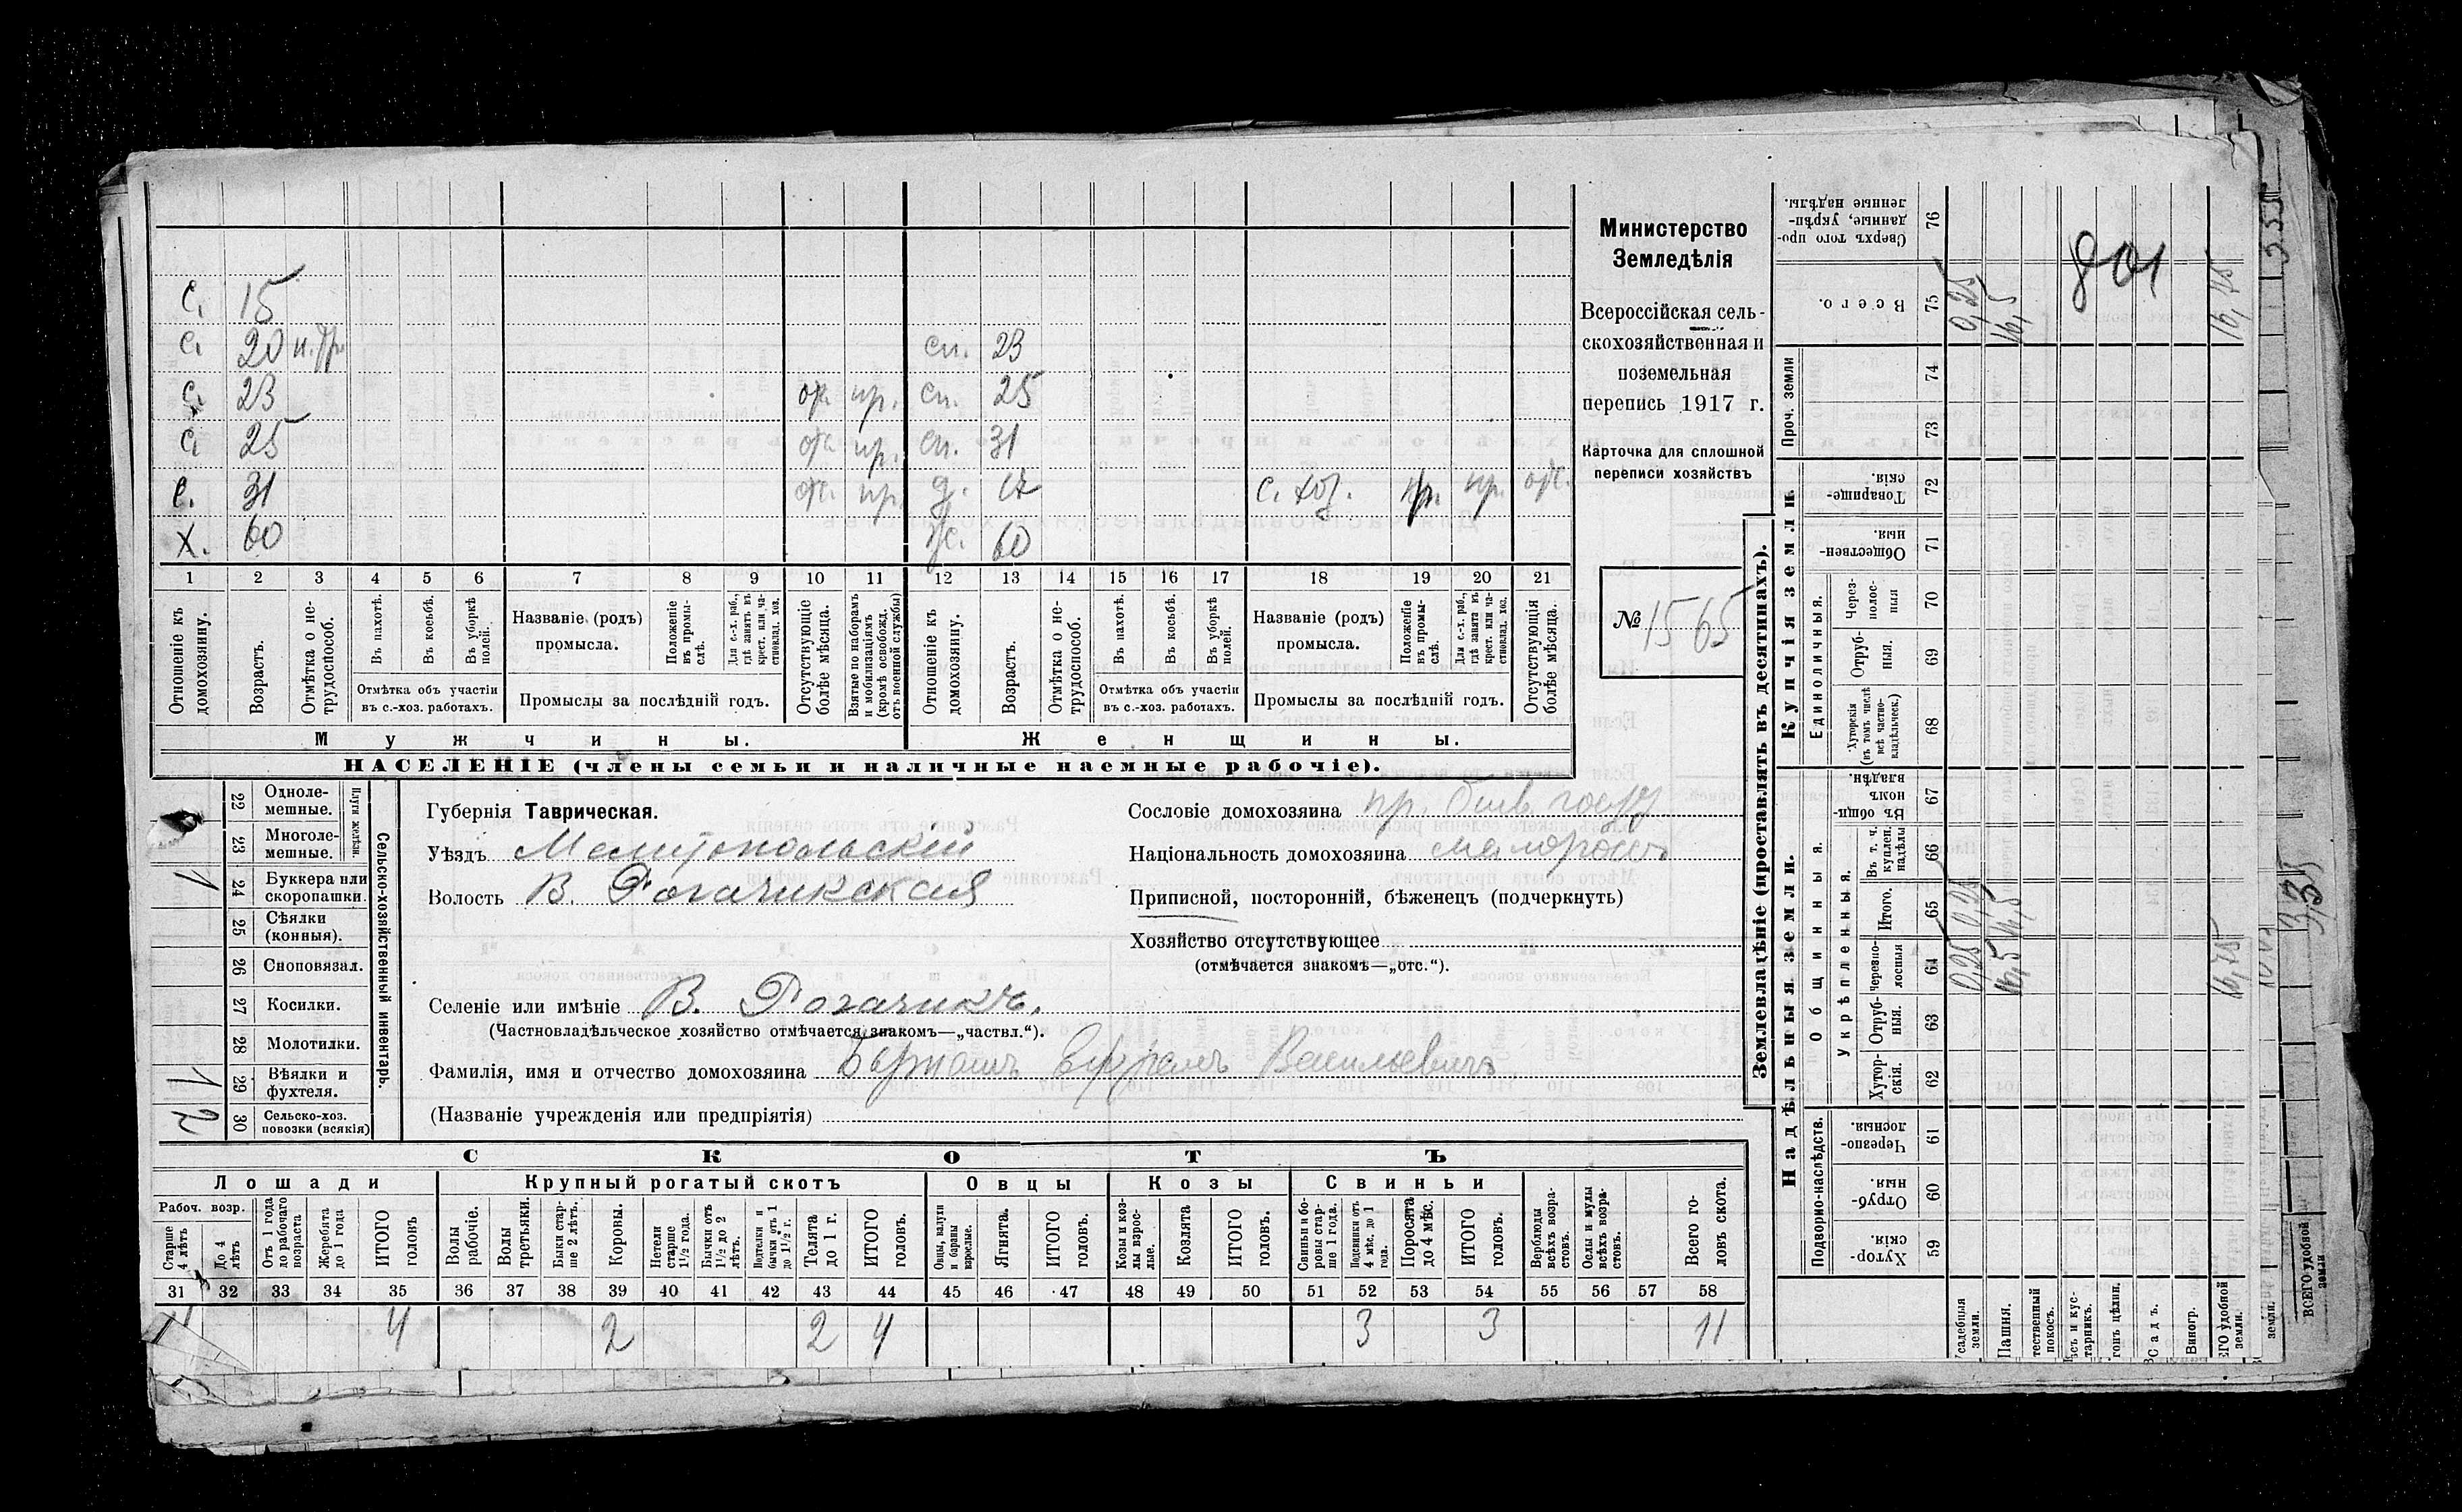 Министерство
Земледѣлія
Всероссійская сель-
скохозяйственная и
поземельная
перепись 1917 г.
Карточка для сплошной
переписи хозяйствъ
№ 1565
с. 15
с. 20 н. тр.
сн. 23
с. 23 от. пр. сн. 25
с. 25 от. пр. сн. 31
с. 31 от. пр. д. 17 с. хоз. пр. пр. от.
х. 60 ж. 60
1 2 3 4 5 6 7 8 9 10 11 12 13 14 15 16 17 18 19 20 21
Отношеніе къ домохозяину.
Возрастъ.
Отмѣтка о не-трудоспособ.
Въ пахотѣ.
Въ косьбѣ.
Въ уборкѣ полей.
Отмѣтка объ участіи
въ с.-хоз. работахъ.
Названіе (родъ)
промысла.
Положеніе въ промы-слѣ.
Для с.-х. раб., гдѣ занятъ въ крест. или ча-стновлад. хоз.
Промыслы за послѣдній годъ.
Отсутствующіе болѣе мѣсяца.
Взятые по наборамъ и мобилизаціямъ (кромѣ освобожд. отъ военной службы)
Отношеніе къ домохозяину.
Возрастъ.
Отмѣтка о не-трудоспособ.
Въ пахотѣ.
Въ косьбѣ.
Въ уборкѣ полей.
Отмѣтка объ участіи
въ с.-хоз. работахъ.
Названіе (родъ)
промысла.
Положеніе въ промы-слѣ.
Для с.-х. раб., гдѣ занята въ крест. или ча-стновлад. хоз.
Промыслы за послѣдній годъ.
Отсутствующія болѣе мѣсяца.
Мужчины. Женщины.
НАСЕЛЕНІЕ (члены семьи и наличные наемные рабочіе).
Губернія Таврическая.
Уѣздъ Мелитопольскій
Волость В. Рогачикская
Селеніе или имѣніе В. Рогачикъ.
(Частновладѣльческое хозяйство отмѣчается знакомъ—„частвл.“).
Фамилія, имя и отчество домохозяина Васильевичъ
(Названіе учрежденія или предпріятія)
Сословіе домохозяина
Національность домохозяина малоросс.
Приписной, посторонній, бѣженецъ (подчеркнуть)
Хозяйство отсутствующее
(отмѣчается знакомъ—„отс.“).
Сельско-хозяйственный инвентарь.
Плуги желѣзн.
22 Одноле-мешные.
23 Многоле-мешные.
24 Буккера или скоропашки. 1
25 Сѣялки (конныя).
26 Сноповязал.
27 Косилки.
28 Молотилки.
29 Вѣялки и фухтеля. 1
30 Сельско-хоз. повозки (всякія) 2
СКОТЪ
Лошади
Крупный рогатый скотъ
Овцы
Козы
Свиньи
Рабоч. возр.
Старше 4 лѣтъ
До 4 лѣтъ
Отъ 1 года до рабочаго возраста
Жеребята до 1 года
ИТОГО головъ
Волы рабочіе.
Волы третьяки.
Быки стар-ше 2 лѣтъ.
Коровы.
Нетели старше 1½ года.
Бычки отъ 1½ до 2 лѣтъ.
Подтелки и бычки отъ 1 до 1½ г.
Телята до 1 г.
ИТОГО головъ.
Овцы, валухи и бараны взрослые.
Ягнята.
ИТОГО головъ.
Козы и коз-лы взрос-лые.
Козлята
ИТОГО головъ.
Свиньи и бо-ровы стар-ше 1 года.
Подсвинки отъ 4 мѣс. до 1 года.
Поросята до 4 мѣс.
ИТОГО головъ.
Верблюды всѣхъ возра-стовъ.
Ослы и мулы всѣхъ возра-стовъ.
Всего го-ловъ скота.
31 32 33 34 35 36 37 38 39 40 41 42 43 44 45 46 47 48 49 50 51 52 53 54 55 56 57 58
4 4 2 2 4 3 3 11
Землевладѣніе (проставлять въ десятинахъ).
Надѣльныя земли.
Купчія земли.
Проч. земли
Общинныя.
Укрѣпленныя.
Подворно-наслѣдств.
Единоличныя.
Сверхъ того про-данные, укрѣп-ленные надѣлы. 76
Всего. 75
74
73
Товарище-скія. 72
Обществен-ныя. 71
Через-полос-ныя 70
Отруб-ныя. 69
Хуторскія (въ томъ числѣ всѣ частно-владѣльческ.) 68
Въ общин-номъ владѣн. 67
Въ т. ч. куплен. надѣлы 66
Итого. 65
черезпо-лосныя 64
Отруб-ныя. 63
Хутор-скія. 62
Черезпо-лосныя. 61
Отруб-ныя. 60
Хутор-скія. 59
0,25 0,25 0,25
16,5 16,5 16,5
16,75 16,75
801
Пашня.
Садъ.
Виногр.
ВСЕГО удобной земли